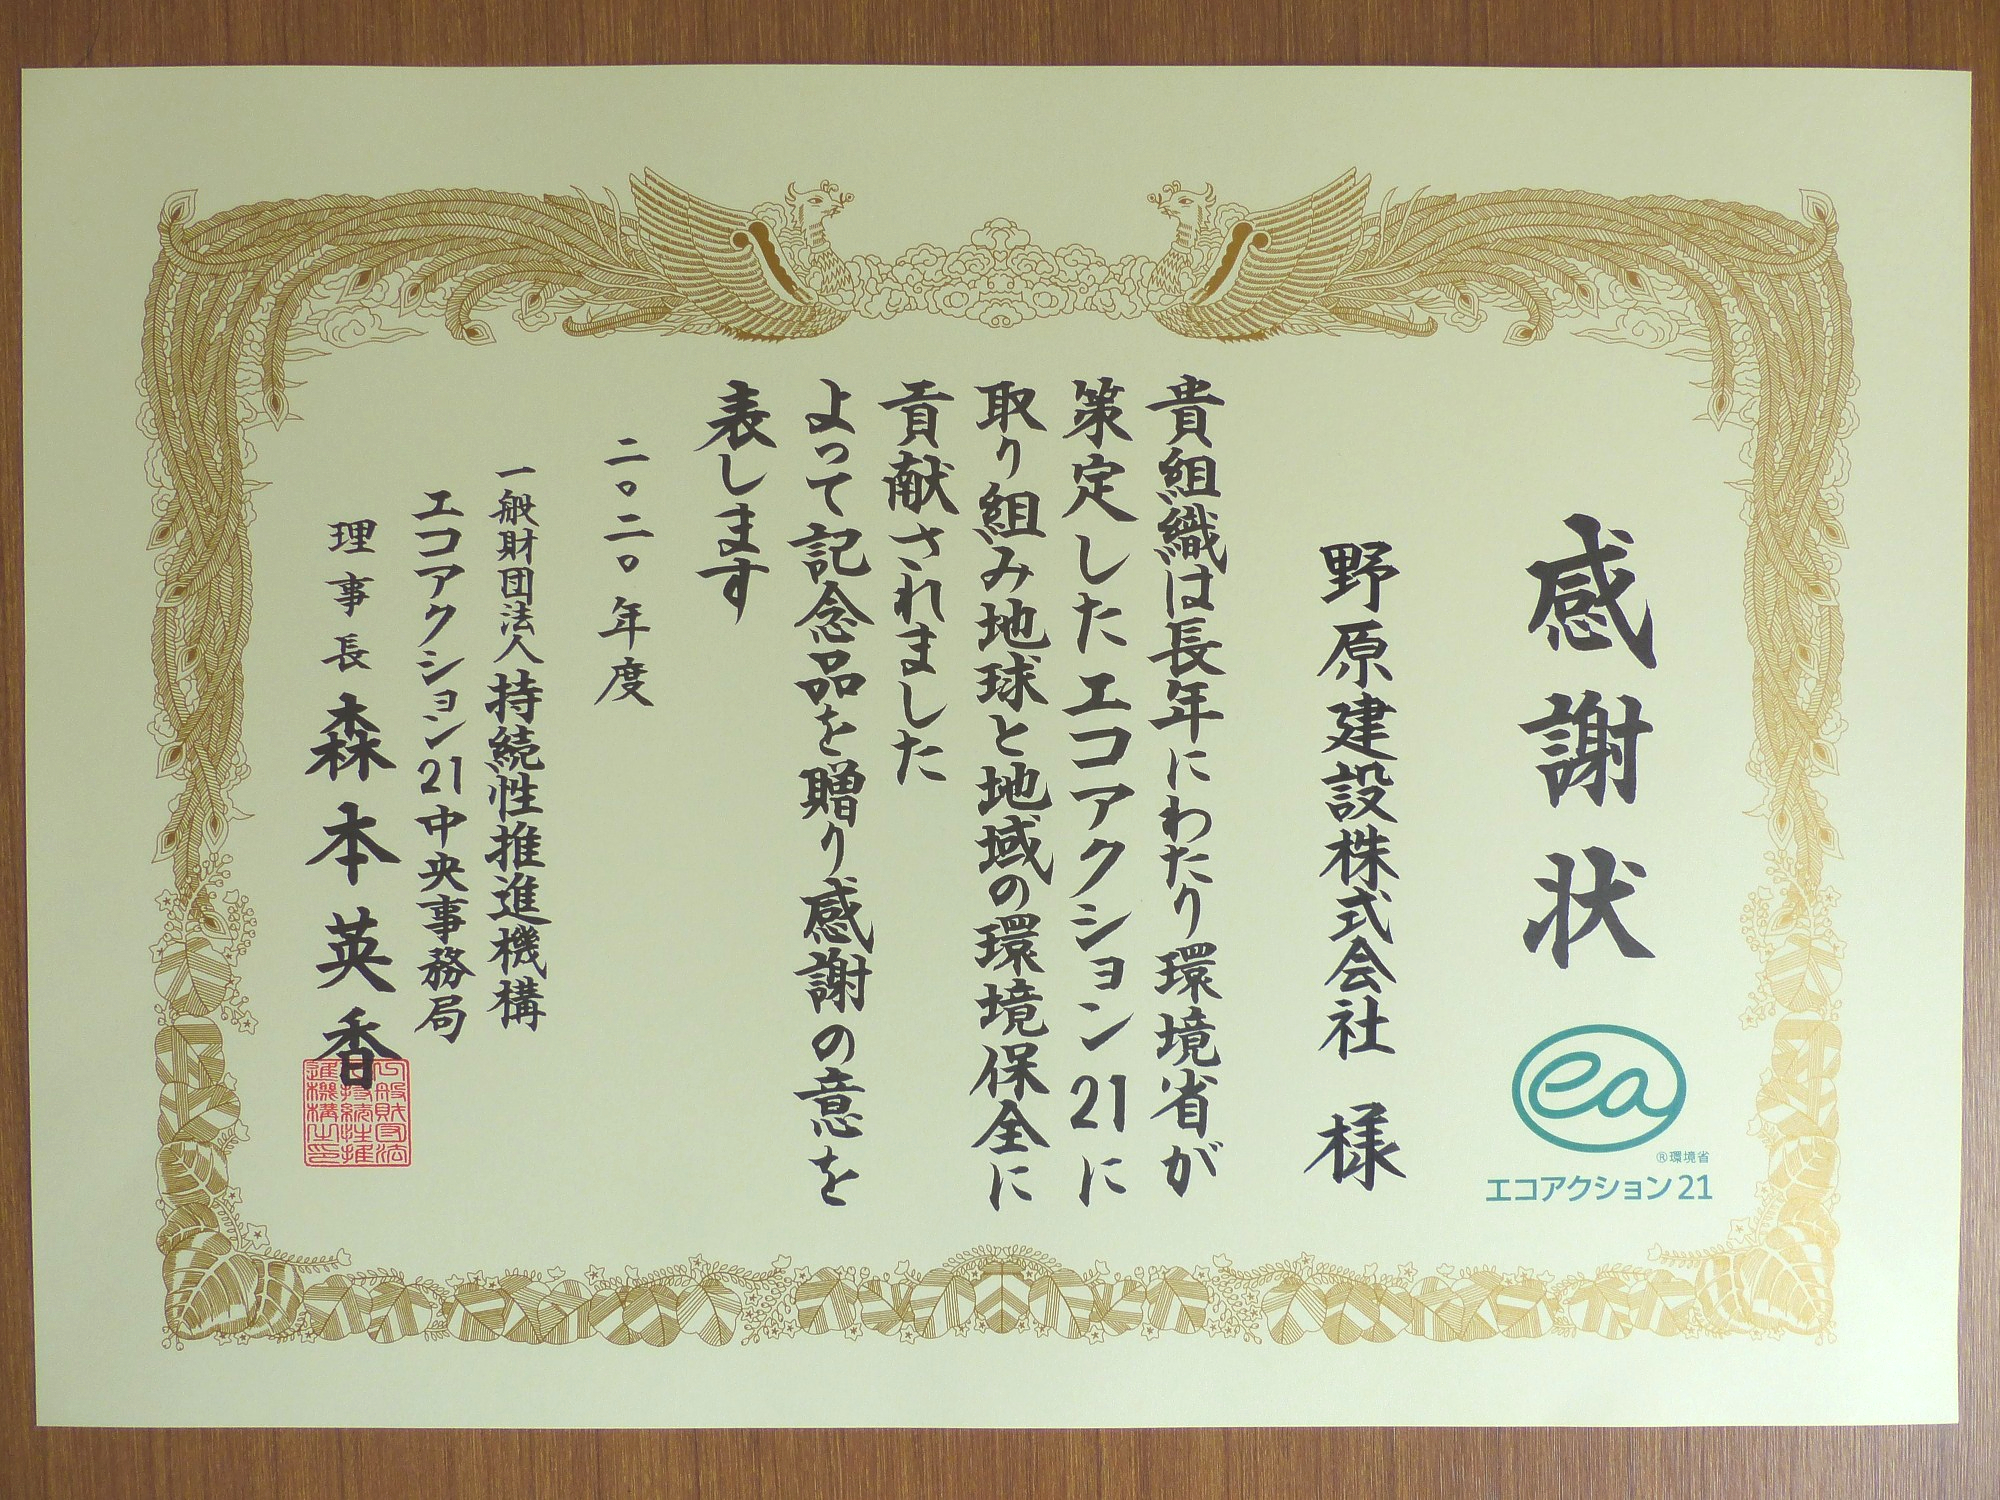 感謝状
ea
®環境省
エコアクション21
野原建設株式会社 様
貴組織は長年にわたり環境省が
策定したエコアクション21に
取り組み地球と地域の環境保全に
貢献されました
よって記念品を贈り感謝の意を
表します
二〇二〇年度
一般財団法人持続性推進機構
エコアクション21中央事務局
理事長 森本英香
一般財団法
人持続性推
進機構之印